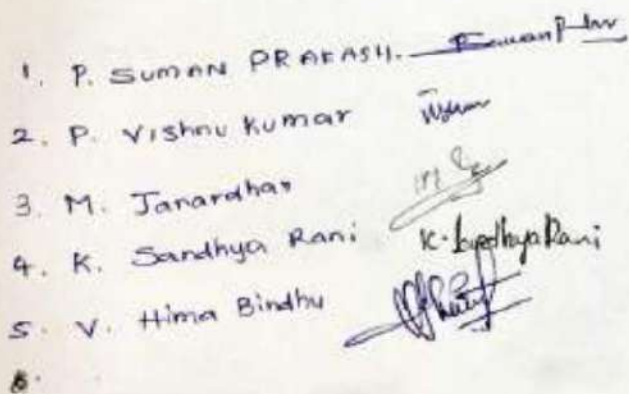 1. P. SUMAN PRAKASH.
2. P. Vishnu Kumar
3. M. Janardhan
4. K. Sandhya Rani K. Sandhya Rani
5. V. Hima Bindhu
6.